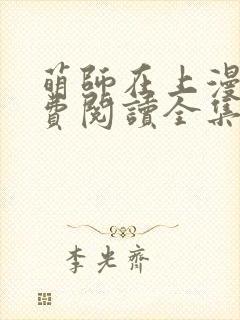 萌師在上漫
費閱讀全集
李光齊